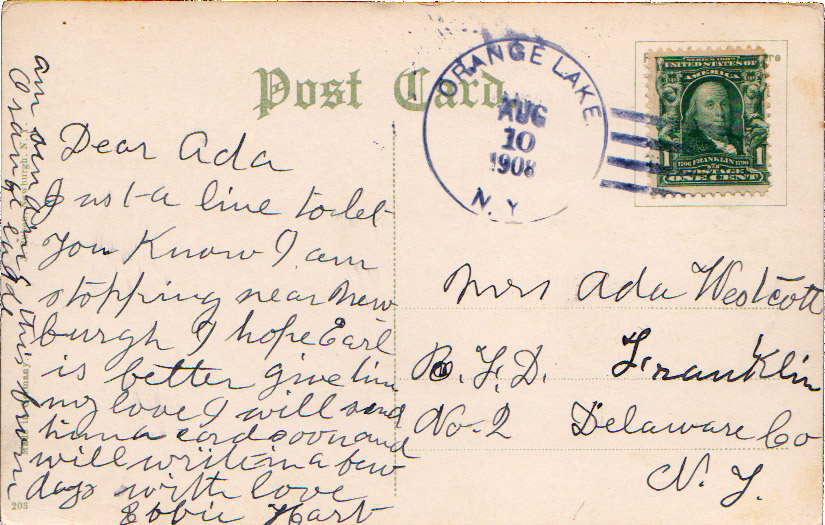 Post Card
ORANGE LAKE
AUG
10
1908
N.Y.
SERIES 1902
UNITED STATES OF
AMERICA
1 1706 FRANKLIN 1790 1
POSTAGE
ONE CENT
Dear Ada
Just a line to let
you Know I am
stopping near New
burgh I hope Earl
is better give him
my love I will send
him a card soon and
will write in a few
days with love
Ebbie Hart
am sending this from
Orange Lake
Mrs Ada Westcott
R.F.D. Franklin
No. 2 Delaware Co
N. Y.
203